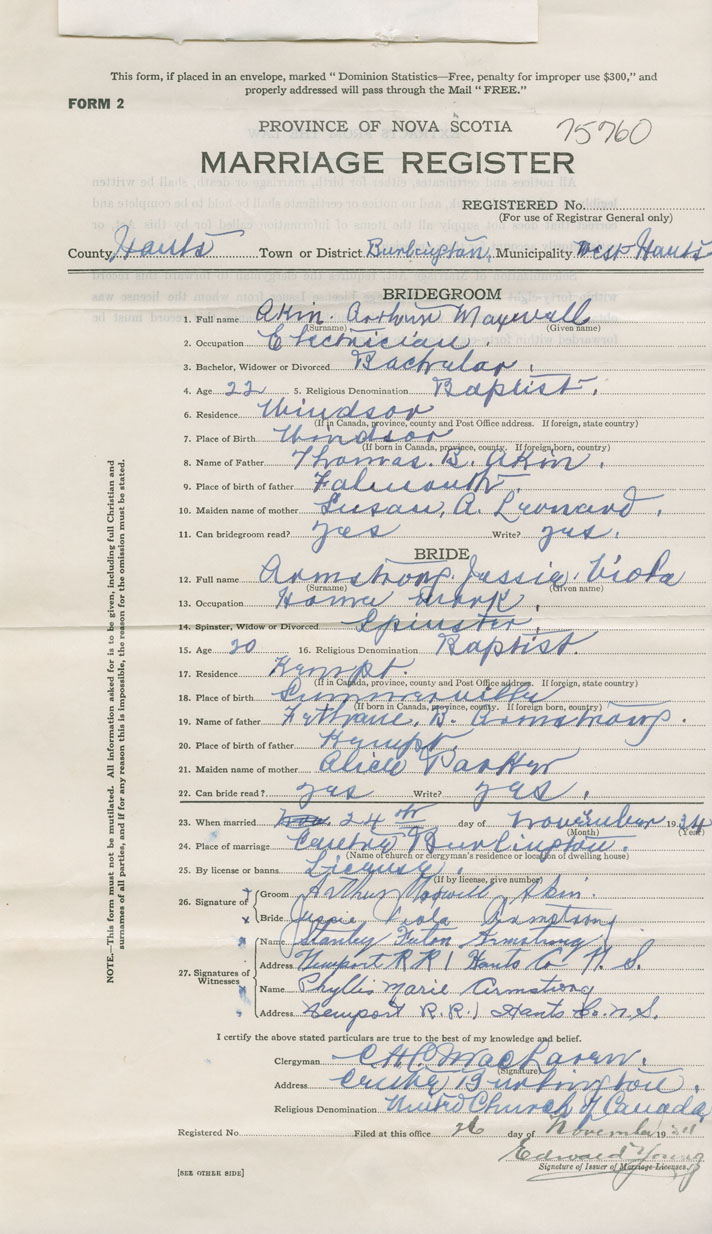 This form, if placed in an envelope, marked " Dominion Statistics—Free, penalty for improper use $300," and
properly addressed will pass through the Mail " FREE."
FORM 2
PROVINCE OF NOVA SCOTIA 75760
MARRIAGE REGISTER
REGISTERED No.
(For use of Registrar General only)
County Hants Town or District Burlington, Municipality West Hants
BRIDEGROOM
1. Full name Akin. Arthur Maxwell
(Surname) (Given name)
2. Occupation Electrician.
3. Bachelor, Widower or Divorced Bachelor.
4. Age 22 5. Religious Denomination Baptist.
6. Residence Windsor
(If in Canada, province, county and Post Office address. If foreign, state country)
7. Place of Birth Windsor
(If born in Canada, province, county. If foreign born, country)
8. Name of Father Thomas. B. Akin.
9. Place of birth of father Falmouth.
10. Maiden name of mother Susan, A. Leonard.
11. Can bridegroom read? yes Write? yes.
BRIDE
12. Full name Armstrong. Jessie. Viola
(Surname) (Given name)
13. Occupation Home Work.
14. Spinster, Widow or Divorced Spinster.
15. Age 20 16. Religious Denomination Baptist.
17. Residence Kempt.
(If in Canada, province, county and Post Office address. If foreign, state country)
18. Place of birth Summerville
(If born in Canada, province, county. If foreign born, country)
19. Name of father B. Armstrong.
20. Place of birth of father Kempt.
21. Maiden name of mother Alice Parker
22. Can bride read? yes Write? yes.
23. When married 24th day of November 1934
(Month) (Year)
24. Place of marriage Centre Burlington.
(Name of church or clergyman's residence or location of dwelling house)
25. By license or banns License.
(If by license, give number)
26. Signature of
Groom Arthur Maxwell Akin.
Bride Jessie Viola Armstrong
27. Signatures of Witnesses
Name Stanley Armstrong
Address Newport R R 1 Hants Co N. S.
Name Phyllis Marie Armstrong
Address Newport R.R.1 Hants Co. N.S.
I certify the above stated particulars are true to the best of my knowledge and belief.
Clergyman C.H.C. MacLaren.
(Signature)
Address Centre Burlington.
Religious Denomination United Church of Canada
Registered No. Filed at this office 26 day of November 1934
Edward Young
Signature of Issuer of Marriage Licenses.
[SEE OTHER SIDE]
NOTE.—This form must not be mutilated. All information asked for is to be given, including full Christian and
surnames of all parties, and if for any reason this is impossible, the reason for the omission must be stated.